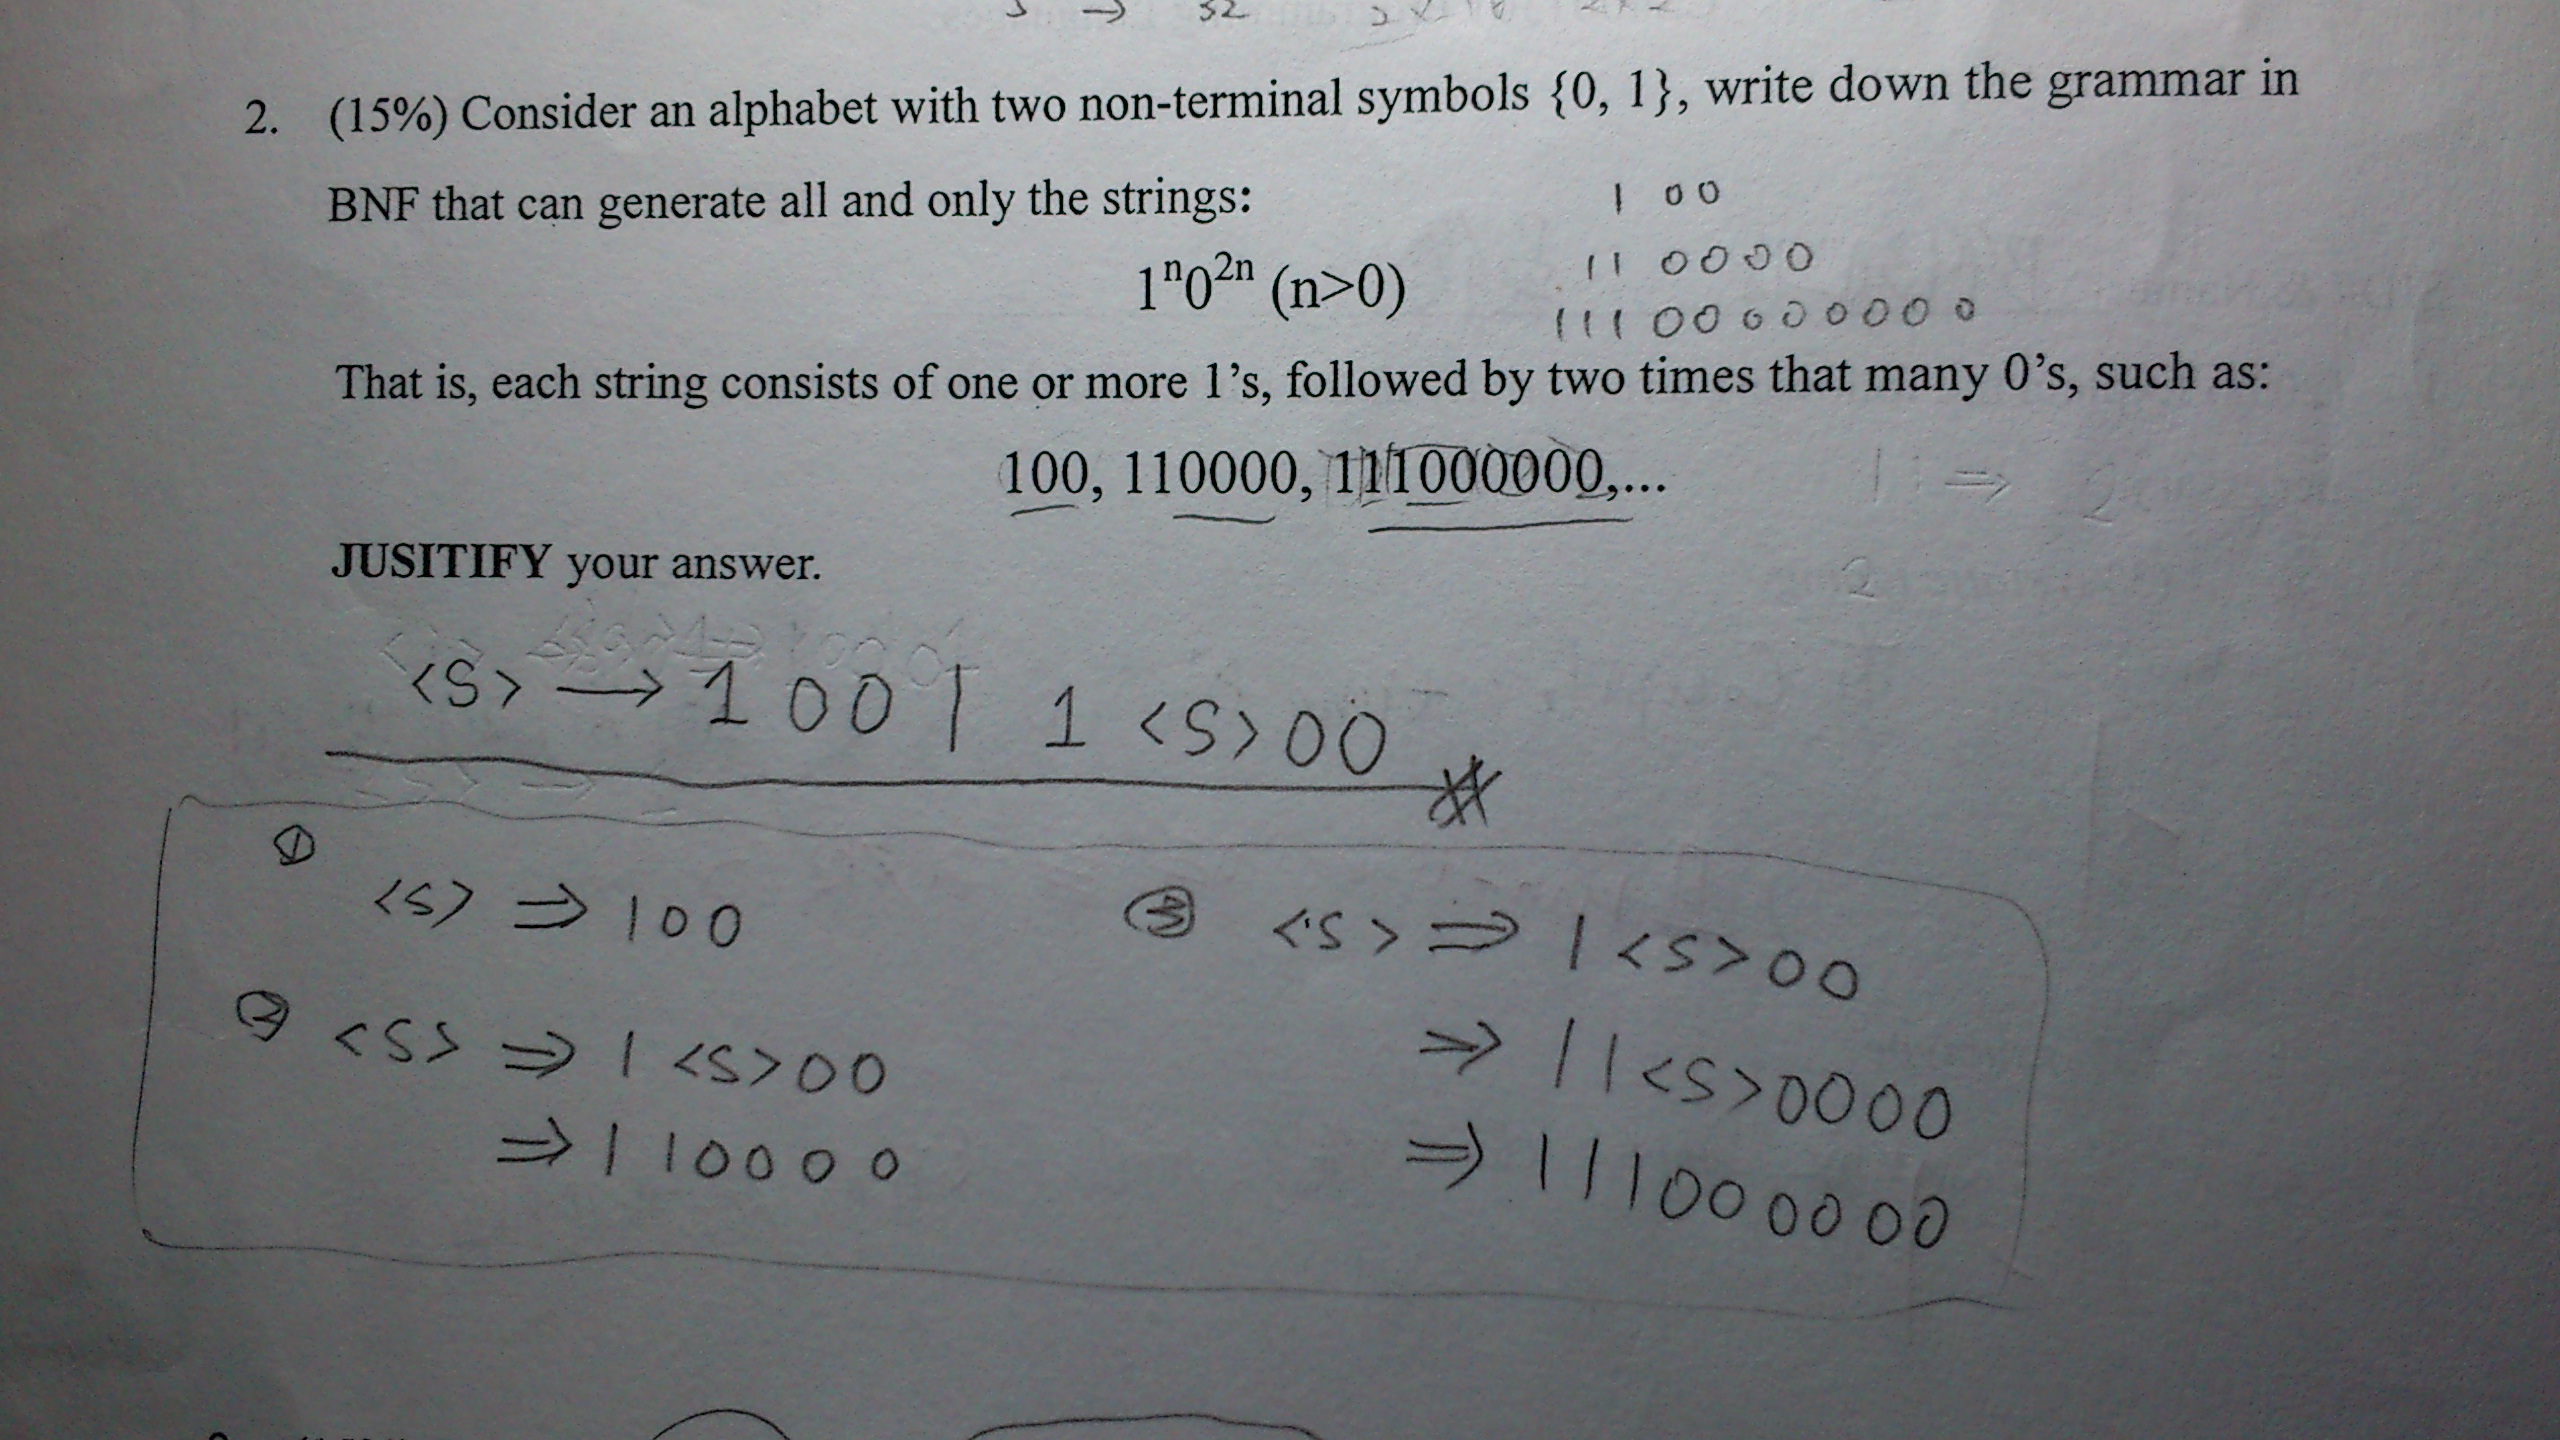 2. (15%) Consider an alphabet with two non-terminal symbols {0, 1}, write down the grammar in
BNF that can generate all and only the strings:
1 00
1ⁿ0²ⁿ (n>0)
11 0000
111 00000000
That is, each string consists of one or more 1's, followed by two times that many 0's, such as:
100, 110000, 111000000,...
1 ⇒ 2
JUSITIFY your answer.
2
<S> → 100 | 1 <S> 00 #
① <S> ⇒ 100
② <S> ⇒ 1 <S> 00
⇒ 110000
③ <S> ⇒ 1 <S> 00
⇒ 11 <S> 0000
⇒ 111000000